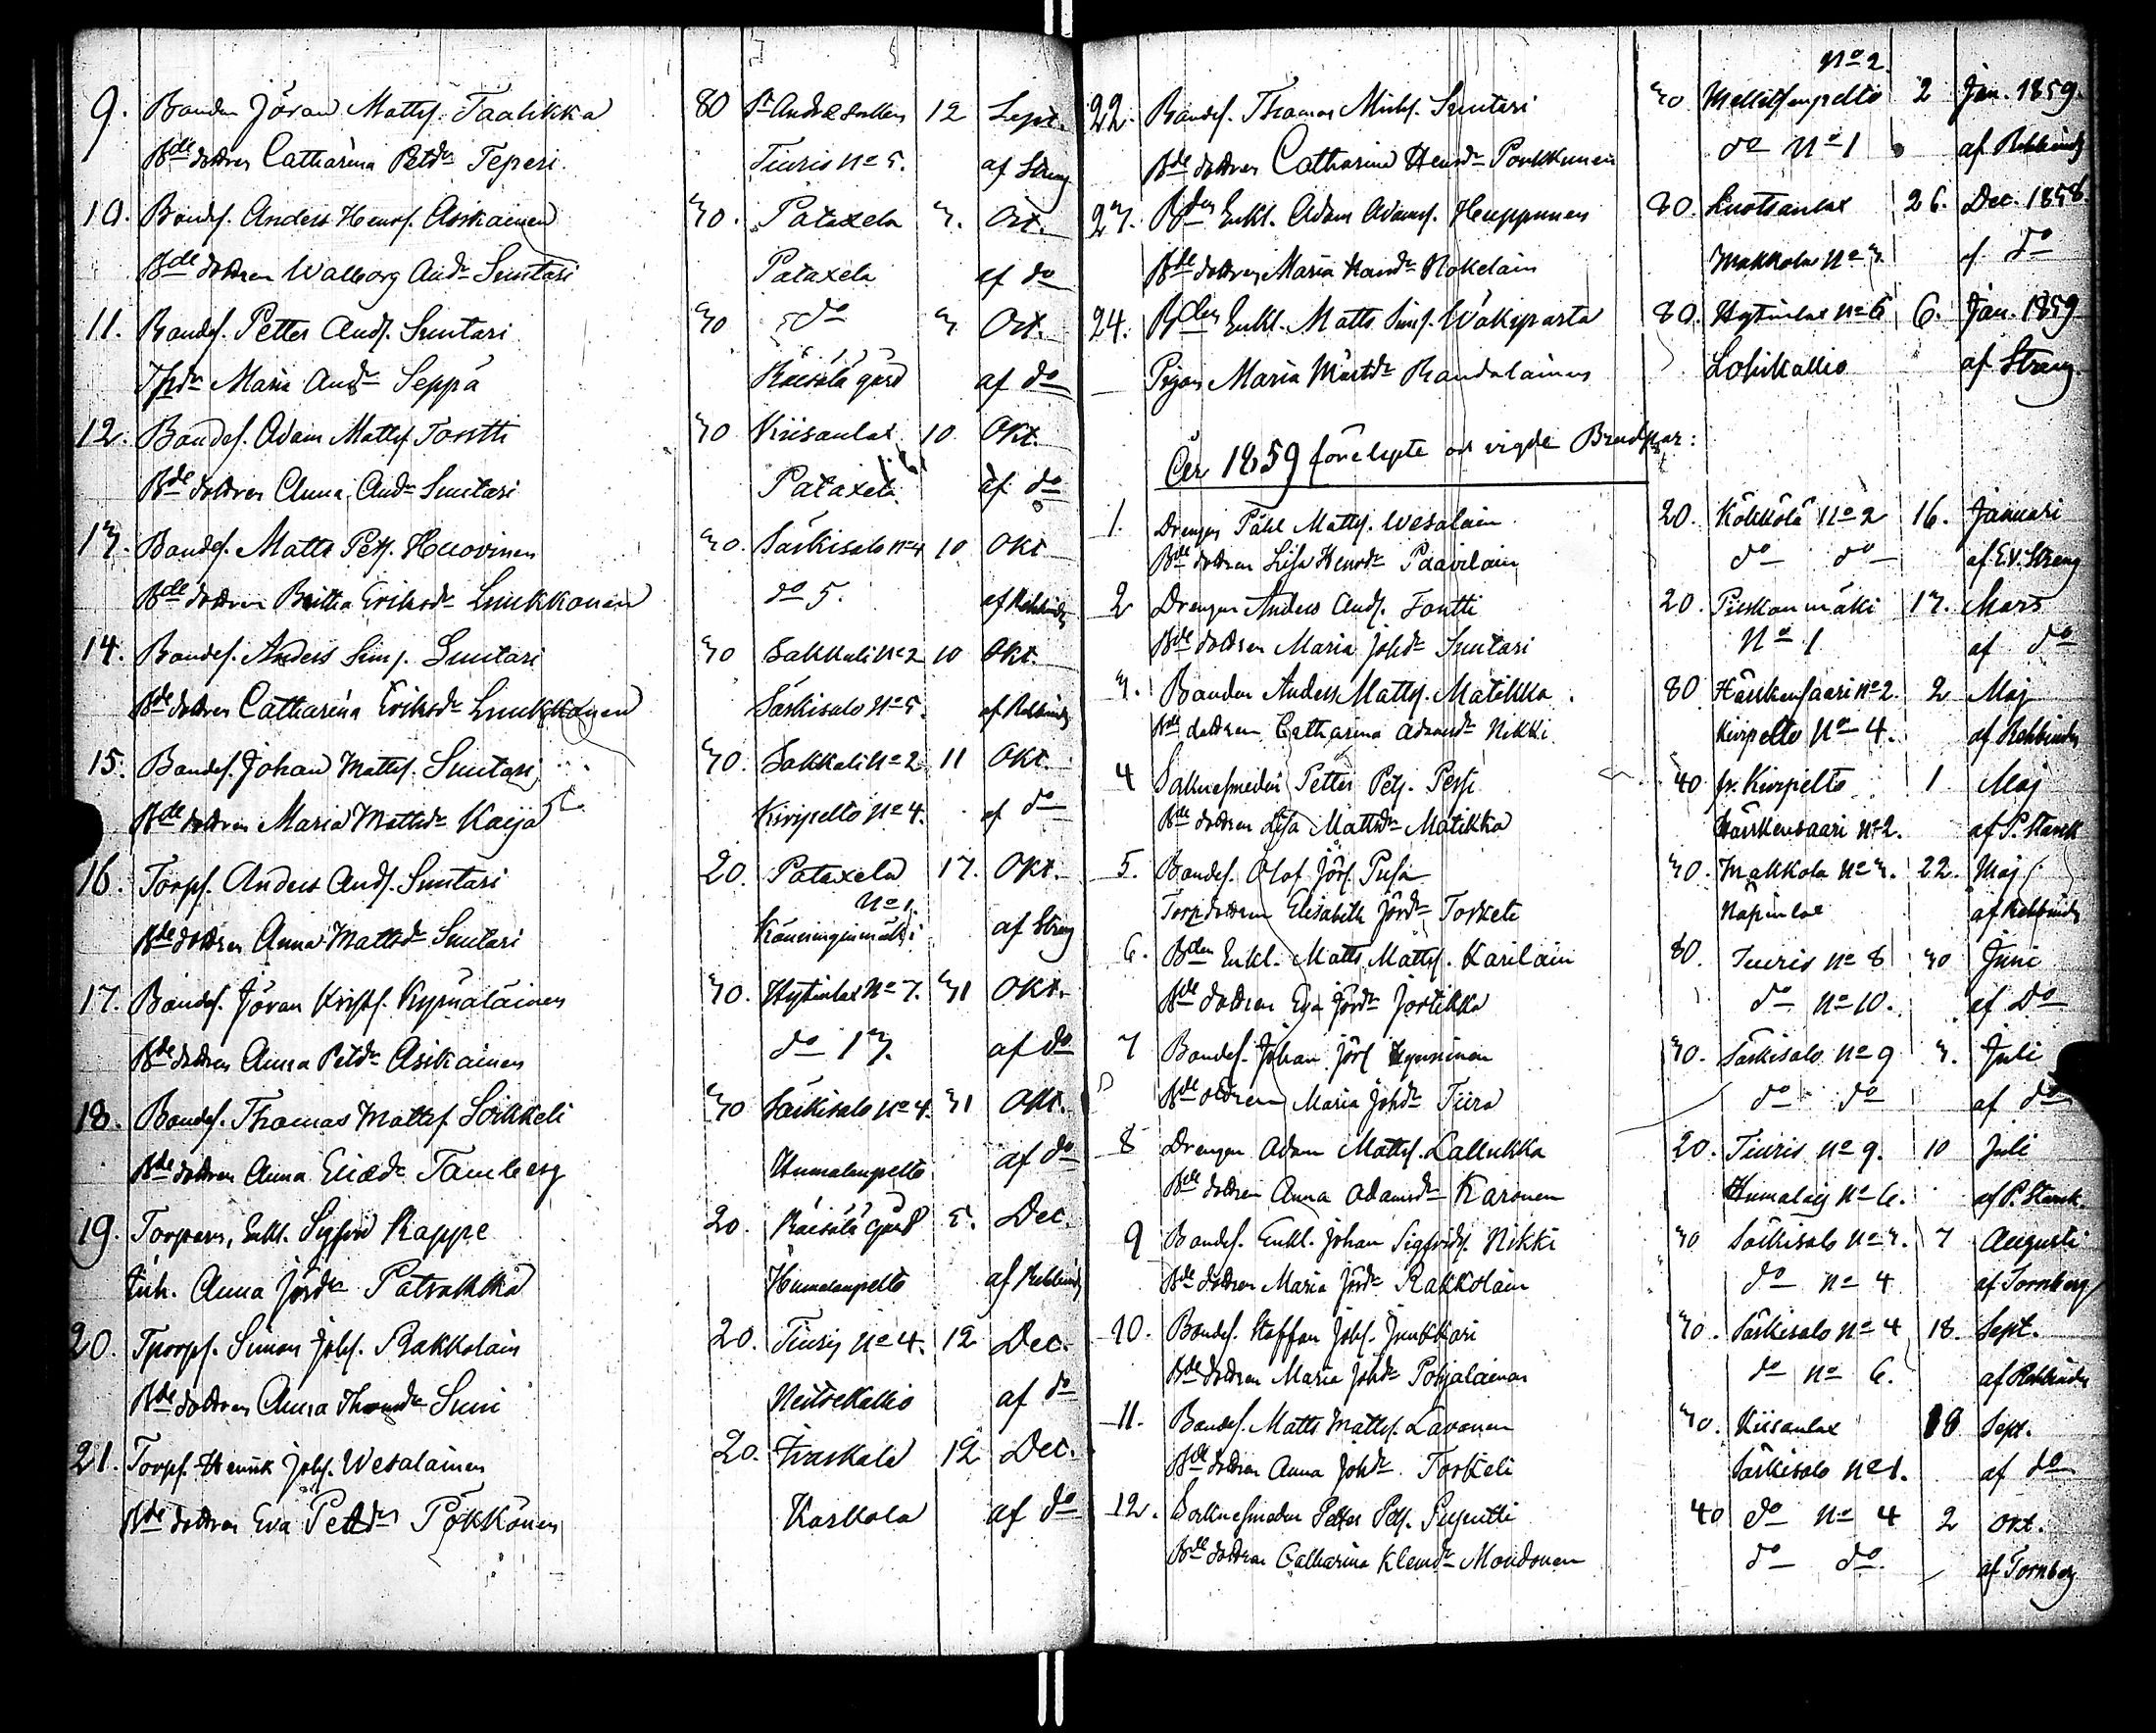 9. Bonden Jöran Matts. Taalikka 80 St Andreæ sokken 12 Sept.
Bde dottren Catharina Petdr Teperi Tiuris No 5. af Streng
10. Bondes. Anders Henrs. Asikainen 30. Pataxela 3. Oct.
Bde dottren Walborg Andr Suntari Pataxela af do
11. Bondes. Petter Ands. Suntari 30 do 3. Oct.
Tpdr Maria Andr Seppä Räisälä gård af do
12. Bondes. Adam Matts. Tontti 30 Kiisanlax 10 Okt.
Bde dottren Anna Andr Suntari Pataxela af do
13. Bondes. Matts Pets. Huovinen 30. Särkisalo No 4 10 Okt
Bde dottren Brittha Eriksdr Luukkonen do 5. af Rehbinder
14. Bondes. Anders Sims. Suntari 30 Sakkali No 2 10 Okt.
Bde dottren Catharina Eriksdr Luukkonen Särkisalo No 5. af Rehbinder
15. Bondes. Johan Matts. Suntari 30. Sakkali No 2 11 Okt.
Bde dottren Maria Mattsdr Kaija Kivipelto No 4. af do
16. Torps. Anders Ands. Suntari 20. Pataxela 17. Okt.
Bde dottren Anna Mattsdr Suntari No 1. af Streng
17. Bondes. Jöran Krists. Kypnäläinen 30. Hytinlax No 7. 31 Okt.
Bde dottren Anna Petdr Asikainen do 13. af do
18. Bondes. Thomas Matts. Soikkeli 30 Särkisalo No 4. 31 Okt.
Bde dottren Anna Eliædr Tamberg Humalanpelto af do
19. Torparen, Enkl. Sigfrid Rappe 20. Räisälä gård 5. Dec.
Inh. Anna Jördr Patrakka Humalanpelto af Rehbinder
20. Tporps. Simon Johs. Rakkolain 20. Tiuris No 4. 12 Dec.
Bde dottren Anna Thomdr Suni Neitsekallio af do
21. Torps. Henrik Johs. Wesalainen 20. Ivaskala 12 Dec.
Bde dottren Eva Petdr Pökkönen Kaskola af do
No 2.
22. Bondes. Thomas Michs. Suntari 30 Mellitsenpelto 2 Jan. 1859.
Bde dottren Catharina Henrdr Poukkunen do No 1 af Rehbinder
23. Bden Enkl. Adam Adams. Heupponen 80. Luotsanlax 26. Dec. 1858.
Bde dottren Maria Hansdr Rokolain Makkola No 3 af do
24. Bden Enkl. Matts Sims. Wäkiparta 80. Hytinlax No 6 6. Jan. 1859
Pigan Maria Mårtdr Randalainen Lohikallio af Streng.
År 1859 förelyste och vigde Brudpar:
1. Drengen Påhl Matts. Wesalain 20. Kökkölä No 2 16. Januari
Bde dottren Lisa Henrdr Paavilain do do af E.V. Streng
2 Drengen Anders Ands. Tontti 20. Pitskanmäki 13. Mars
Bde dottren Maria Johdr Suntari No 1 af do
3. Bonden Anders Matts. Matikka 80 Härskensaari No 2. 2 Maj
Bde dottren Catharina Adamsdr Nikki Kivipelto No 4. af Rehbinder
4 Socknesmeden Petter Pets. Perssi 40 fr. Kivipelto 1 Maj
Bde dottren Lisa Mattsdr Matikka Härskensaari No 2. af P. Starck
5. Bondes. Olof Jörs. Pusa 30. Makkola No 3. 22. Maj
Torpdottren Elisabeth Jördr Torkeli Näpinlax af Rehbinder
6. Bden Enkl. Matts Matts. Karilain 80. Tiuris No 8 30 Juni
Bde dottren Eva Jördr Jortikka do No 10. af Do
7 Bondes. Johan Jörs. Kynninen 30. Särkisalo No 9 3. Juli
Bde dottren Maria Johdr Tiira do do af do
8 Drengen Adam Matts. Lallukka 20. Tiuris No 9. 10 Juli
Bde dottren Anna Adamsdr Karonen Humalais No 6. af P. Starck.
9 Bondes. Enkl. Johan Sigfrids. Nikki 30 Särkisalo No 3. 7 Augusti
Bde dottren Maria Jördr Rakkolain do No 4 af Tornberg
10. Bondes. Staffan Johs. Junkkari 30. Särkisalo No 4 18. Sept.
Bde dottren Maria Johdr Pohjalainen do No 6. af Rehbinder
11. Bondes. Matts Matts. Lavonen 30. Kiisanlax 18 Sept.
Bde dottren Anna Johdr Torkeli Särkisalo No 1. af do
12. Socknesmeden Petter Pets. Pusutti 40 do No 4 2 Okt.
Bde dottren Catharina Klemdr Moudonen do do af Tornberg